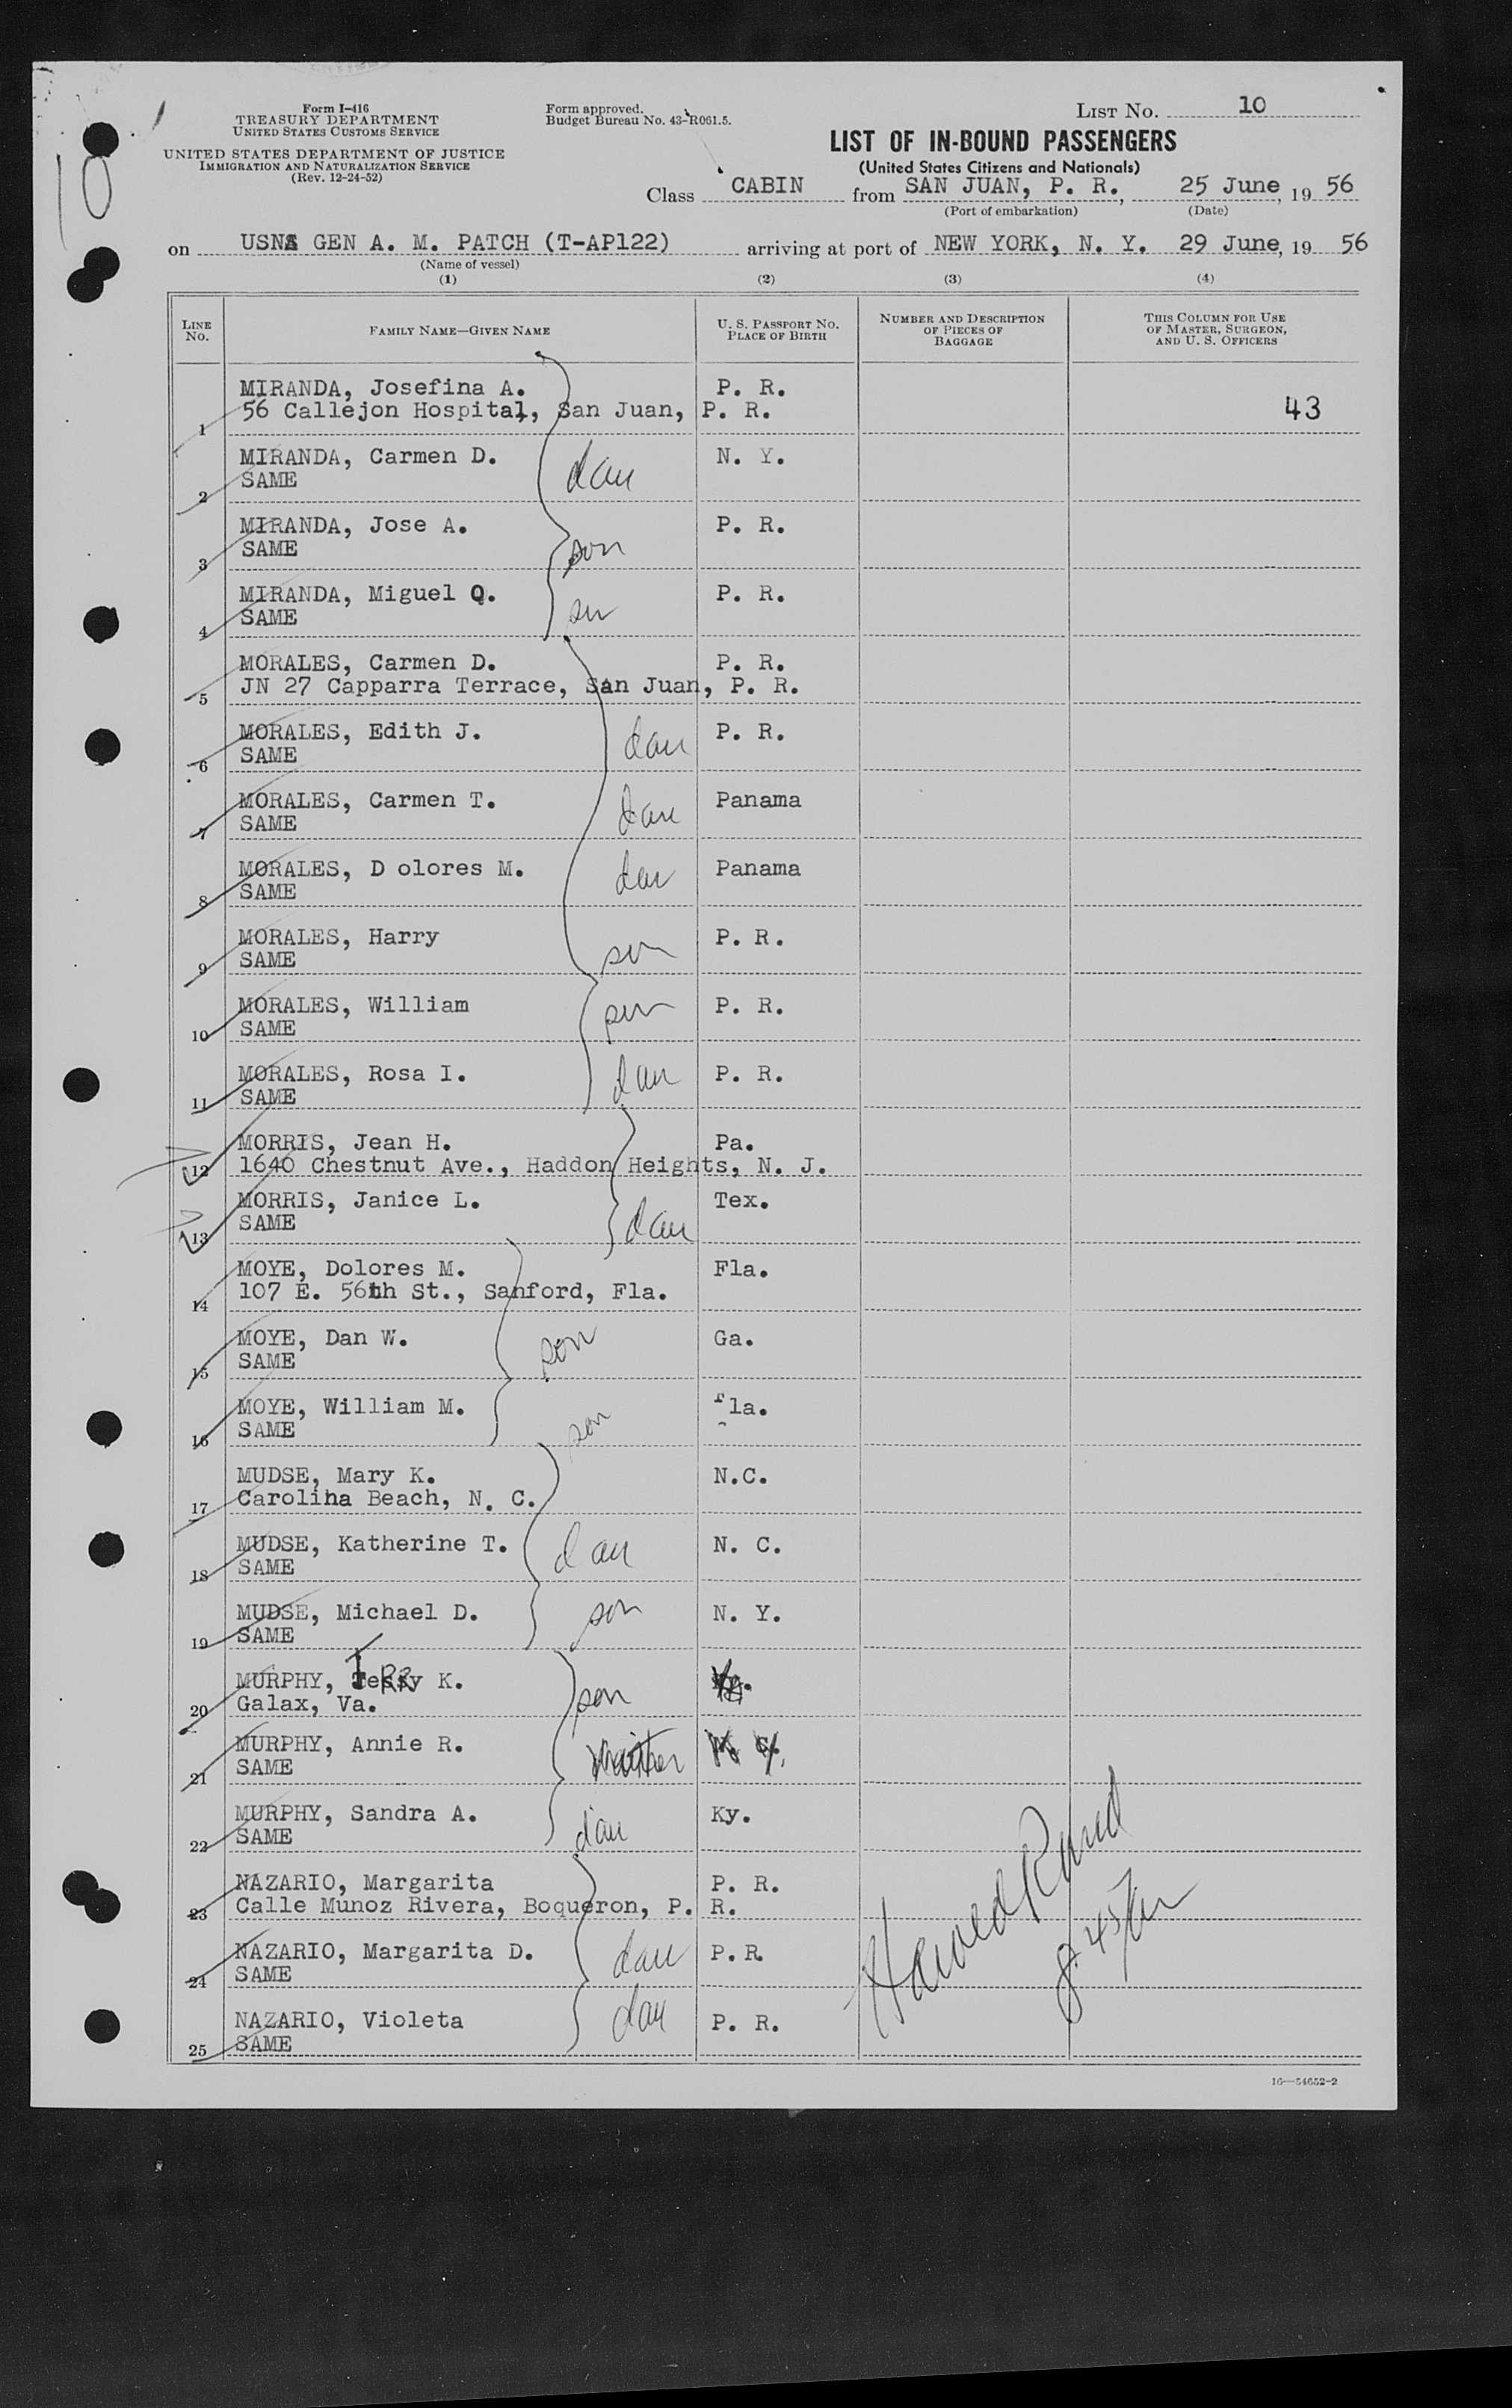 10
Form I-416
TREASURY DEPARTMENT
UNITED STATES CUSTOMS SERVICE
UNITED STATES DEPARTMENT OF JUSTICE
IMMIGRATION AND NATURALIZATION SERVICE
(Rev. 12-24-52)
Form approved.
Budget Bureau No. 43-R061.5.
LIST NO. 10
LIST OF IN-BOUND PASSENGERS
(United States Citizens and Nationals)
Class CABIN from SAN JUAN, P. R., 25 June, 19 56
(Port of embarkation) (Date)
on USNS GEN A. M. PATCH (T-AP122) arriving at port of NEW YORK, N. Y. 29 June, 19 56
(Name of vessel)
(1) (2) (3) (4)
LINE NO. FAMILY NAME—GIVEN NAME U. S. PASSPORT NO. PLACE OF BIRTH NUMBER AND DESCRIPTION OF PIECES OF BAGGAGE THIS COLUMN FOR USE OF MASTER, SURGEON, AND U. S. OFFICERS
MIRANDA, Josefina A. P. R.
1 56 Callejon Hospital, San Juan, P. R. 43
MIRANDA, Carmen D. dau N. Y.
2 SAME
MIRANDA, Jose A. son P. R.
3 SAME
MIRANDA, Miguel Q. son P. R.
4 SAME
MORALES, Carmen D. P. R.
5 JN 27 Capparra Terrace, San Juan, P. R.
MORALES, Edith J. dau P. R.
6 SAME
MORALES, Carmen T. dau Panama
7 SAME
MORALES, D olores M. dau Panama
8 SAME
MORALES, Harry son P. R.
9 SAME
MORALES, William son P. R.
10 SAME
MORALES, Rosa I. dau P. R.
11 SAME
MORRIS, Jean H. Pa.
12 1640 Chestnut Ave., Haddon Heights, N. J.
MORRIS, Janice L. dau Tex.
13 SAME
MOYE, Dolores M. Fla.
14 107 E. 56th St., Sanford, Fla.
MOYE, Dan W. son Ga.
15 SAME
MOYE, William M. son Fla.
16 SAME
MUDSE, Mary K. N.C.
17 Carolina Beach, N. C.
MUDSE, Katherine T. dau N. C.
18 SAME
MUDSE, Michael D. son N. Y.
19 SAME
MURPHY, Jerry K. son
20 Galax, Va.
MURPHY, Annie R.
21 SAME
MURPHY, Sandra A. dau Ky.
22 SAME
NAZARIO, Margarita P. R.
23 Calle Munoz Rivera, Boqueron, P. R.
NAZARIO, Margarita D. dau P.R.
24 SAME
NAZARIO, Violeta dau P. R.
25 SAME
16—54652-2